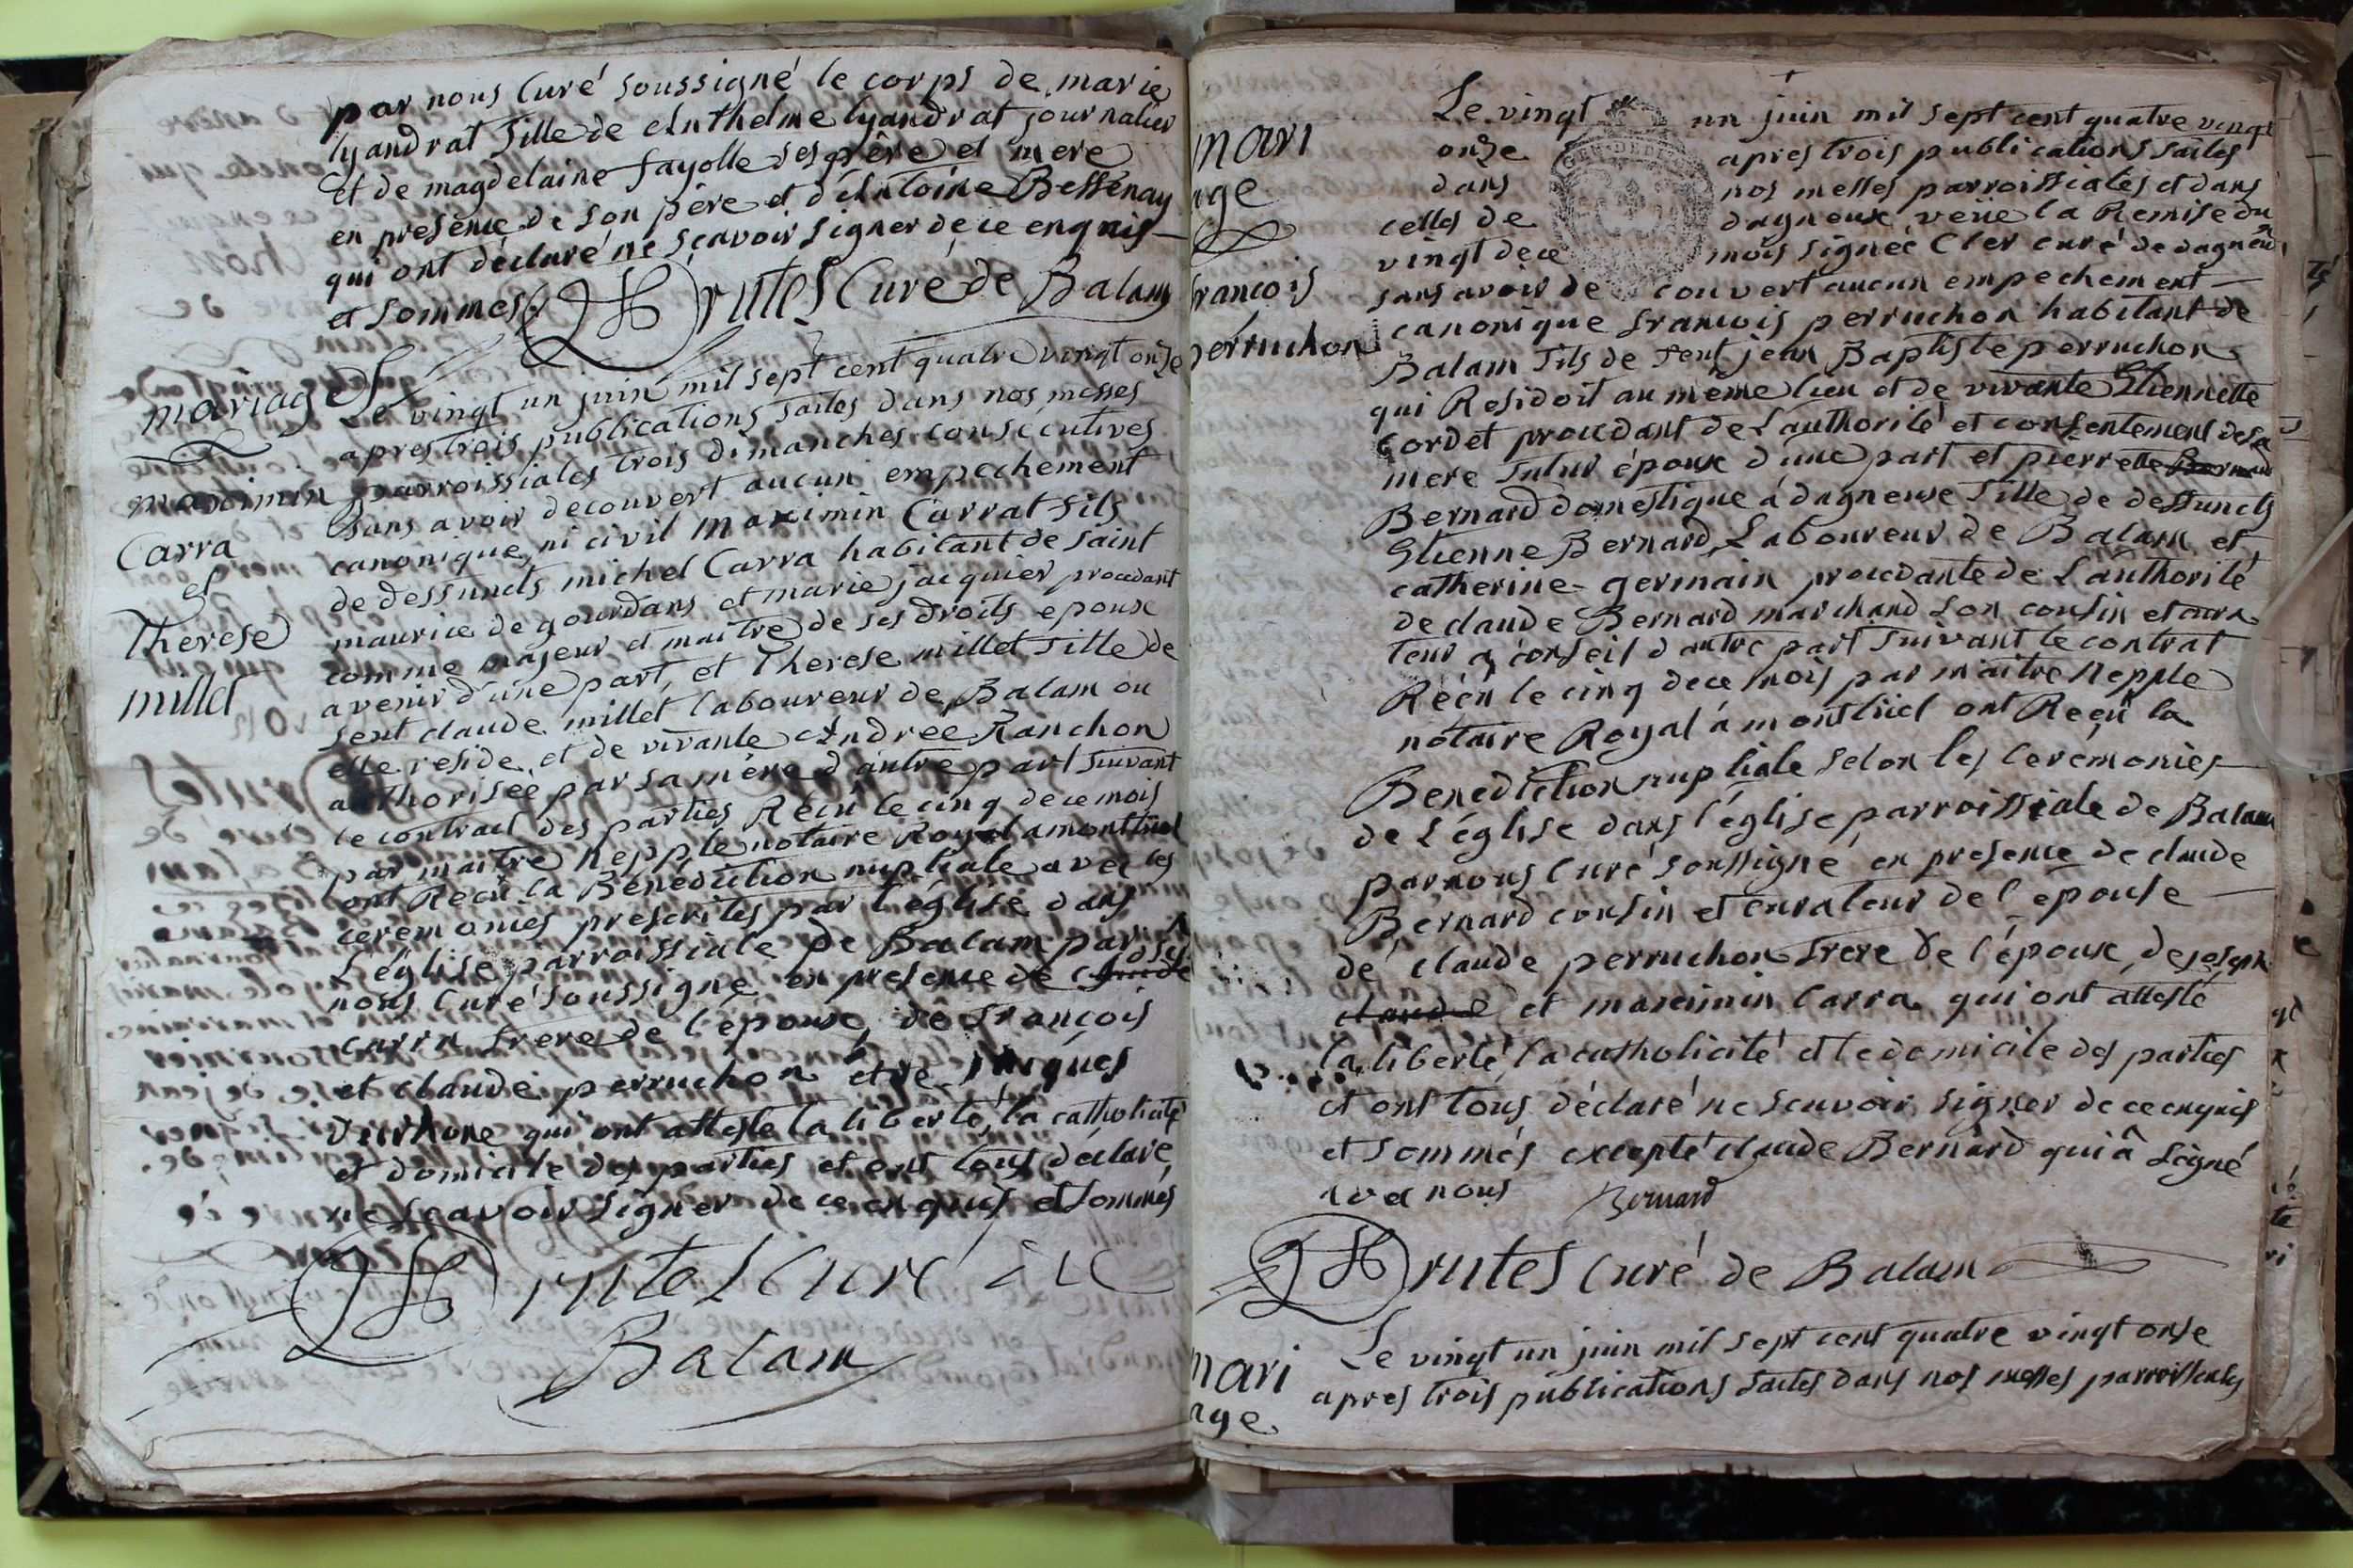 par nous Curé soussigné le corps de marie
lyandrat fille de Anthelme lyandrat journalier
et de magdelaine fayolle ses père et mere
en presence de son père et d'Antoine Bessenay
qui ont déclaré ne sçavoir signer de ce enquis
et sommés Drutel Curé de Balam
mariage
maximin
Carra
et
Therese
millet
Le vingt un juin mil sept cent quatre vingt onze
apres trois publications faites dans nos messes
parroissiales trois dimanches consécutives
sans avoir decouvert aucun empechement
canonique ni civil maximin Carrat fils
de deffuncts michel Carra habitant de saint
maurice de gourdans et marie jacquier procedant
comme majeur et maitre de ses droits epoux
avenir d'une part, et Therese millet fille de
feut claude millet laboureur de Balam ou
elle reside et de vivante Andrée Ranchon
authorisée par sa mère d'autre part suivant
le contract des parties Reçû le cinq de ce mois
par maitre Nepple notaire Royal a montluel
ont Reçu la Bénédiction nuptiale avec les
ceremonies prescrites par l'église dans
L'église parroissiale de Balam par
nous Curé soussigné en presence de claude
carra frere de l'epoux, de françois
et claude perruchon et de jacques
qui ont atteste la liberté, la catholicité
et domicile des parties et ont tous déclaré
ne sçavoir signer de ce enquis et sommés
Drutel Curé de
Balam
mari
age
francois
perruchon
Le vingt un juin mil sept cent quatre vingt
onze apres trois publications faites
dans nos messes parroissiales et dans
celles de dagneux veüe la Remise du
vingt de ce mois signée Cler curé de dagneux
sans avoir de couvert aucun empechement
canonique francois perruchon habitant de
Balam fils de feut jean Baptiste perruchon
qui Residoit au même lieu et de vivante Etiennette
cordet procedant de L'authorité et consentement de sa
mere futur époux d'une part et pierrette
Bernard domestique à dagneux fille de deffuncts
Etienne Bernard Laboureur de Balam et
catherine germain procedante de L'authorité
de claude Bernard marchand son cousin et cura
teur a conseil d'autre part suivant le contrat
Reçu le cinq de ce mois par maitre Nepple
notaire Royal à montluel ont Reçu la
Benediction nuptiale selon les Ceremonies
de L'église dans l'église parroissiale de Balam
par nous Curé soussigné en presence de claude
Bernard cousin et curateur de l'epouse
de claude perruchon frere de l'époux, de joseph
claude et maximin Carra qui ont attesté
la liberté, la catholicité et le domicile des parties
et ont tous déclaré ne scavoir signer de ce enquis
et sommés excepté claude Bernard qui â signé
avec nous Bernard
Drutel Curé de Balam
mari
age
Le vingt un juin mil sept cent quatre vingt onze
apres trois publications faites dans nos messes parroissiales